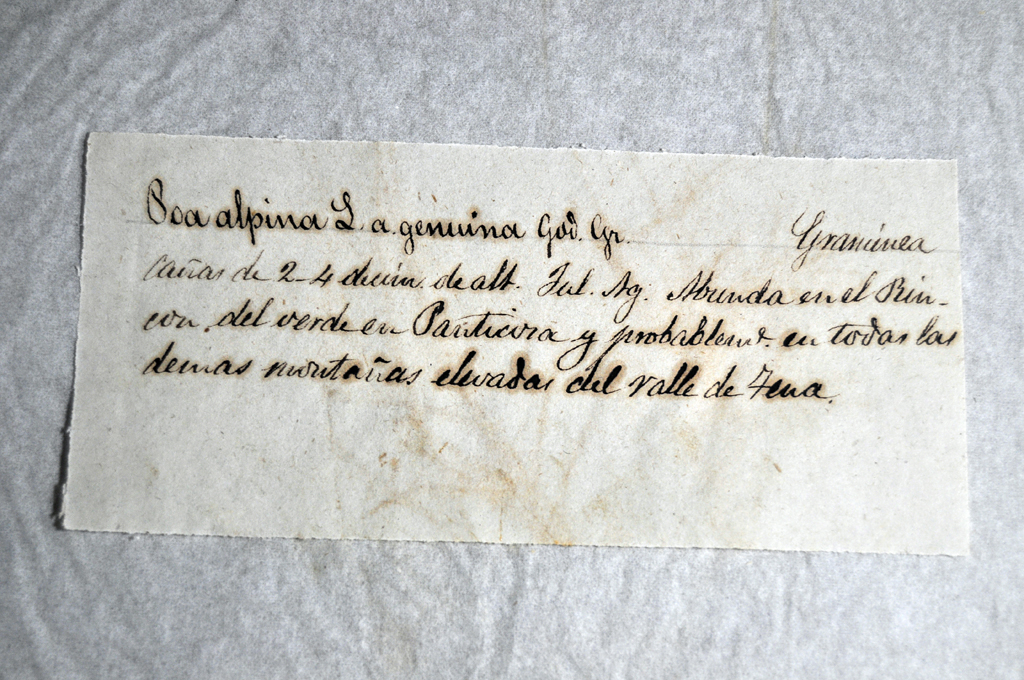 Poa alpina L. a. genuina God. Gr. Gramínea
Cañas de 2-4 decím. de alt. Jul. Ag. Abunda en el Rin-
con del verde en Panticosa y probablemt. en todas las
demas montañas elevadas del valle de Tena.